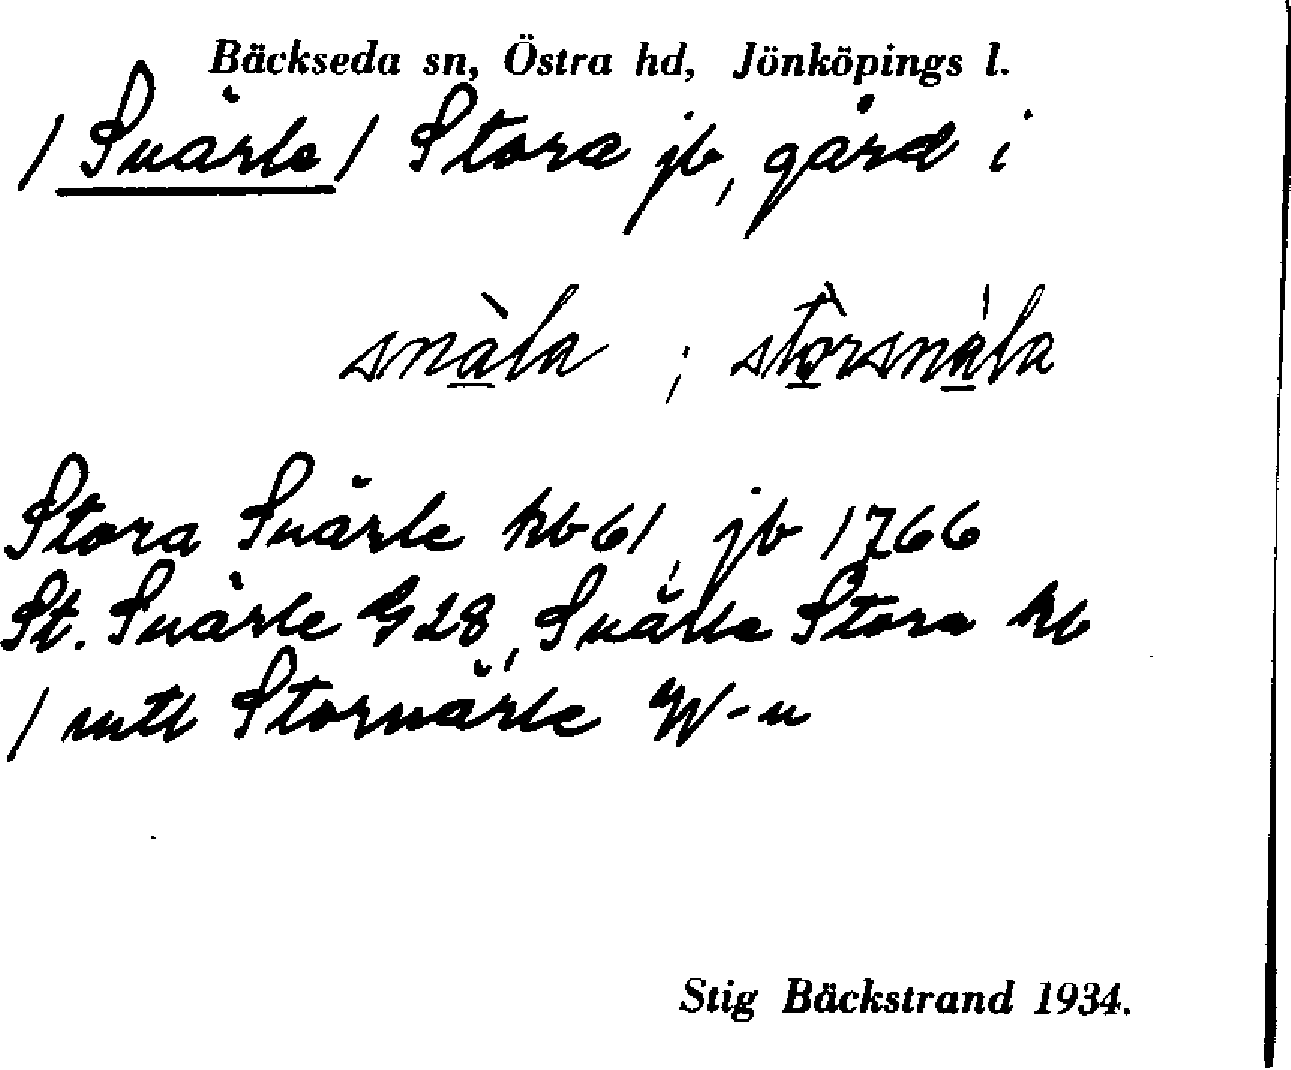 Bäckseda sn, Östra hd, Jönköpings l.
/ Snärle / Stora jb, gård i
snàla ; stòrsnàla
Stora Snärle hb 61, jb 1766
St. Snärle G 28, Snärle Stora hb
/ intl Stornärle W-u
Stig Bäckstrand 1934.